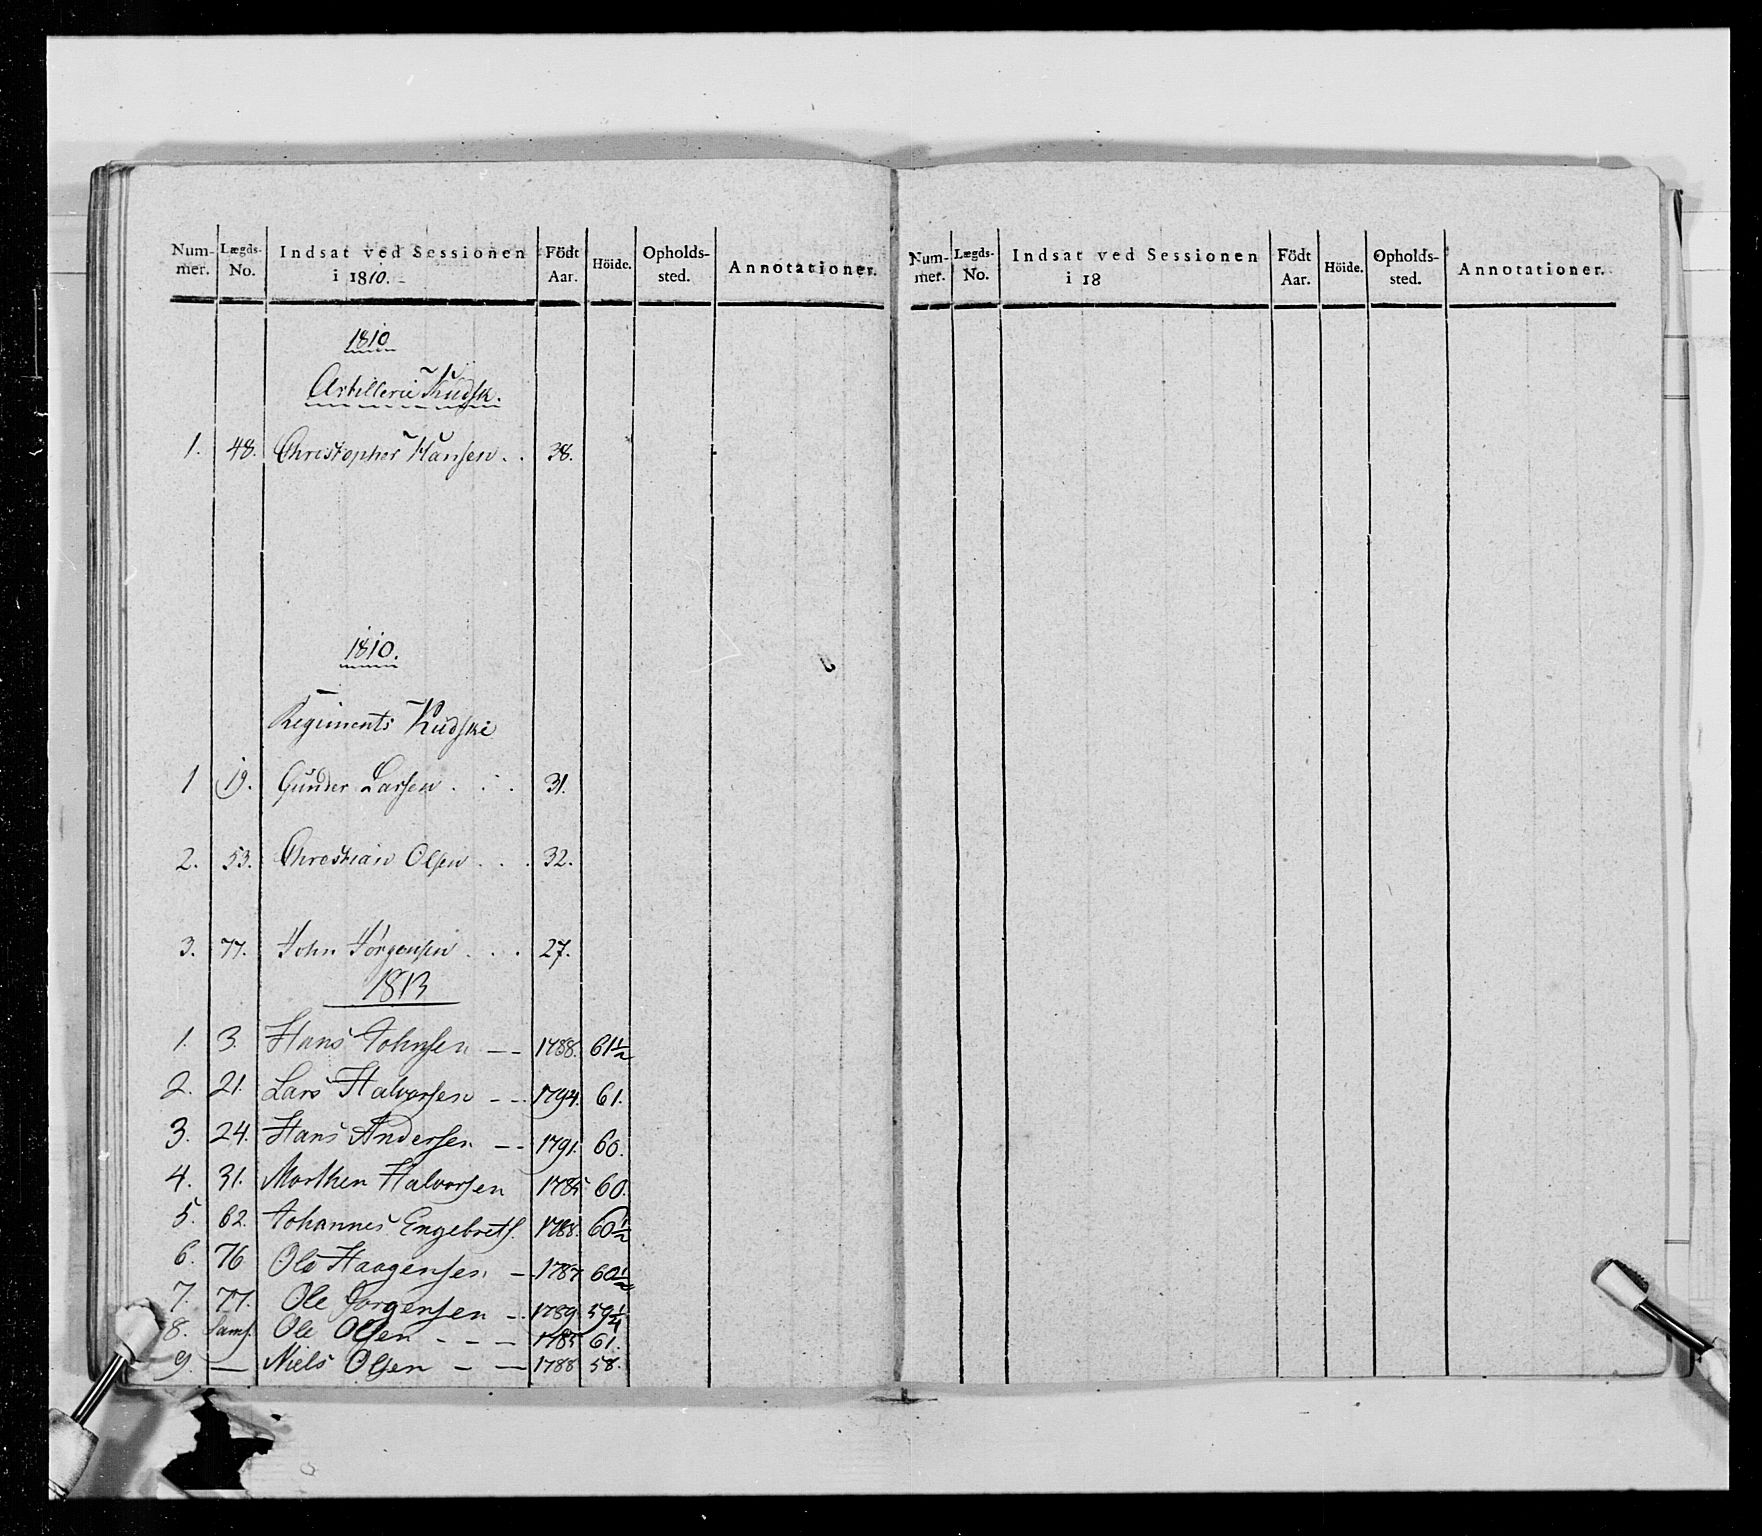 Num- Lægds- Indsat ved Sessionen Födt Höide. Opholds- Annotationer.
mer. No. i 1810. Aar. sted.
1810
Artillerie Kudsk.
1. 48. Christopher Hansen . . 38.
1810.
Regiments Kudske
1 19. Gunder Larsen . . . 31.
2. 53. Christian Olsen . . . 32.
3. 77. John Jörgensen . . . 27.
1813
1. 3. Hans Johnsen -- 1788. 61½
2. 21. Lars Halvorsen -- 1794. 61.
3. 24. Hans Andersen -- 1791. 60.
4. 31. Morthen Halvorsen 1785 60.
5. 62. Johannes Engebrets. 1788. 60½
6. 76 Ole Haagensen - 1787 60½
7. 77. Ole Jörgensen -. 1789. 59¼
8. Sams. Ole Olsen --- 1785 61.
9. — Niels Olsen -- 1788 58.
Num- Lægds- Indsat ved Sessionen Födt Höide. Opholds- Annotationer.
mer. No. i 18 Aar. sted.